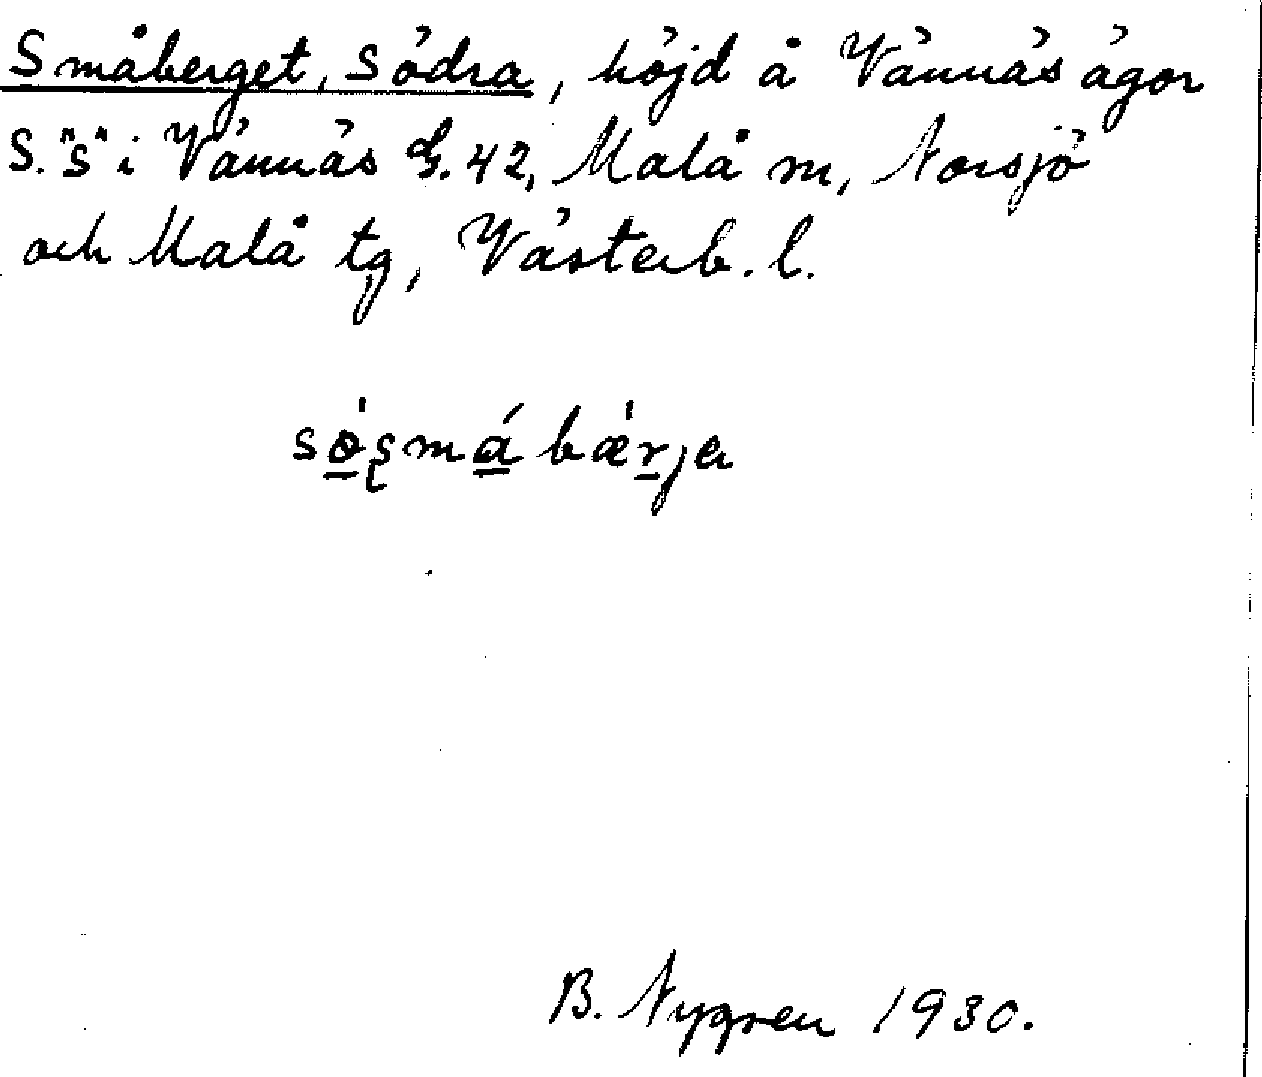 Småberget, Södra, höjd å Vännäs ägor
S. "s" i Vännäs G. 42, Malå m, Norsjö
och Malå tg, Västerb. l.
sö̀ʂmá bæ̀rjə
B. Nygren 1930.